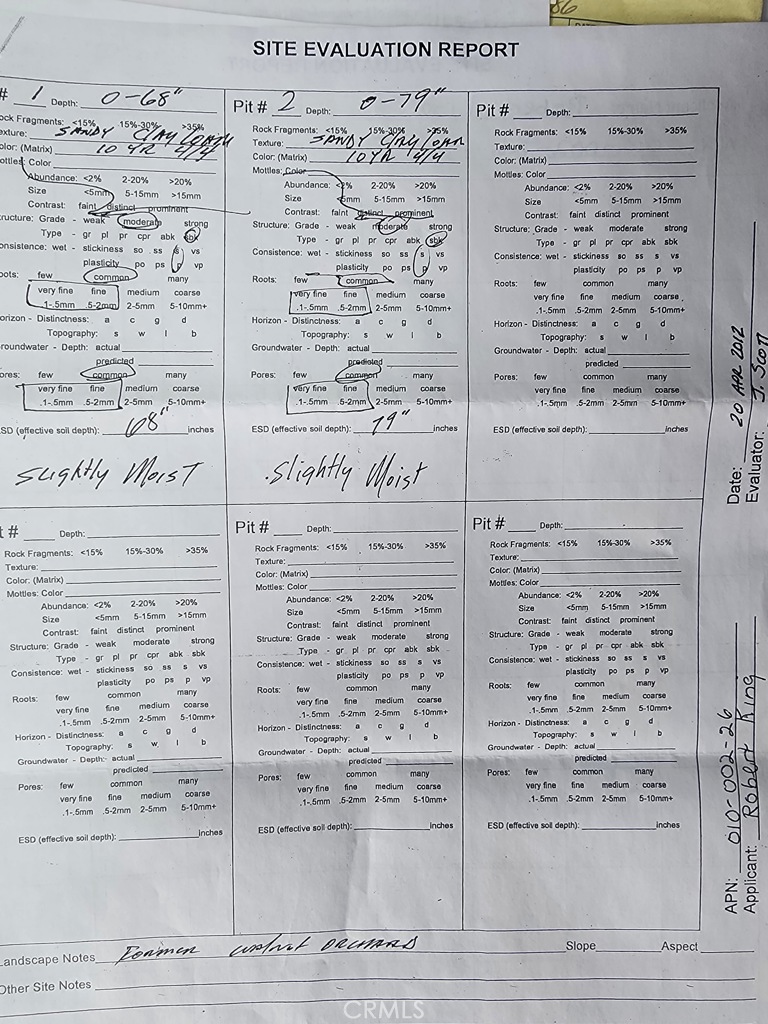 86
SITE EVALUATION REPORT
# 1 Depth: 0-68"
ock Fragments: <15% 15%-30% >35%
exture: SANDY CLAY LOAM
olor: (Matrix) 10 YR 4/4
ottles: Color
Abundance: <2% 2-20% >20%
Size <5mm 5-15mm >15mm
Contrast: faint distinct prominent
ructure: Grade - weak moderate strong
Type - gr pl pr cpr abk sbk
onsistence: wet - stickiness so ss s vs
plasticity po ps p vp
oots: few common many
very fine fine medium coarse
.1-.5mm .5-2mm 2-5mm 5-10mm+
orizon - Distinctness: a c g d
Topography: s w l b
roundwater - Depth: actual
predicted
ores: few common many
very fine fine medium coarse
.1-.5mm .5-2mm 2-5mm 5-10mm+
SD (effective soil depth): 68" inches
Slightly Moist
Pit # 2 Depth: 0-79"
Rock Fragments: <15% 15%-30% >35%
Texture: SANDY CLAY LOAM
Color: (Matrix) 10 YR 4/4
Mottles: Color
Abundance: <2% 2-20% >20%
Size <5mm 5-15mm >15mm
Contrast: faint distinct prominent
Structure: Grade - weak moderate strong
Type - gr pl pr cpr abk sbk
Consistence: wet - stickiness so ss s vs
plasticity po ps p vp
Roots: few common many
very fine fine medium coarse
.1-.5mm .5-2mm 2-5mm 5-10mm+
Horizon - Distinctness: a c g d
Topography: s w l b
Groundwater - Depth: actual
predicted
Pores: few common many
very fine fine medium coarse
.1-.5mm .5-2mm 2-5mm 5-10mm+
ESD (effective soil depth): 79" inches
Slightly Moist
Pit # Depth:
Rock Fragments: <15% 15%-30% >35%
Texture:
Color: (Matrix)
Mottles: Color
Abundance: <2% 2-20% >20%
Size <5mm 5-15mm >15mm
Contrast: faint distinct prominent
Structure: Grade - weak moderate strong
Type - gr pl pr cpr abk sbk
Consistence: wet - stickiness so ss s vs
plasticity po ps p vp
Roots: few common many
very fine fine medium coarse
.1-.5mm .5-2mm 2-5mm 5-10mm+
Horizon - Distinctness: a c g d
Topography: s w l b
Groundwater - Depth: actual
predicted
Pores: few common many
very fine fine medium coarse
.1-.5mm .5-2mm 2-5mm 5-10mm+
ESD (effective soil depth): inches
t # Depth:
Rock Fragments: <15% 15%-30% >35%
Texture:
Color: (Matrix)
Mottles: Color
Abundance: <2% 2-20% >20%
Size <5mm 5-15mm >15mm
Contrast: faint distinct prominent
Structure: Grade - weak moderate strong
Type - gr pl pr cpr abk sbk
Consistence: wet - stickiness so ss s vs
plasticity po ps p vp
Roots: few common many
very fine fine medium coarse
.1-.5mm .5-2mm 2-5mm 5-10mm+
Horizon - Distinctness: a c g d
Topography: s w l b
Groundwater - Depth: actual
predicted
Pores: few common many
very fine fine medium coarse
.1-.5mm .5-2mm 2-5mm 5-10mm+
ESD (effective soil depth): inches
Pit # Depth:
Rock Fragments: <15% 15%-30% >35%
Texture:
Color: (Matrix)
Mottles: Color
Abundance: <2% 2-20% >20%
Size <5mm 5-15mm >15mm
Contrast: faint distinct prominent
Structure: Grade - weak moderate strong
Type - gr pl pr cpr abk sbk
Consistence: wet - stickiness so ss s vs
plasticity po ps p vp
Roots: few common many
very fine fine medium coarse
.1-.5mm .5-2mm 2-5mm 5-10mm+
Horizon - Distinctness: a c g d
Topography: s w l b
Groundwater - Depth: actual
predicted
Pores: few common many
very fine fine medium coarse
.1-.5mm .5-2mm 2-5mm 5-10mm+
ESD (effective soil depth): inches
Pit # Depth:
Rock Fragments: <15% 15%-30% >35%
Texture:
Color: (Matrix)
Mottles: Color
Abundance: <2% 2-20% >20%
Size <5mm 5-15mm >15mm
Contrast: faint distinct prominent
Structure: Grade - weak moderate strong
Type - gr pl pr cpr abk sbk
Consistence: wet - stickiness so ss s vs
plasticity po ps p vp
Roots: few common many
very fine fine medium coarse
.1-.5mm .5-2mm 2-5mm 5-10mm+
Horizon - Distinctness: a c g d
Topography: s w l b
Groundwater - Depth: actual
predicted
Pores: few common many
very fine fine medium coarse
.1-.5mm .5-2mm 2-5mm 5-10mm+
ESD (effective soil depth): inches
APN: 010-002-26 Date: 20 APR 2012
Applicant: Robert King Evaluator: J. Scott
Landscape Notes Former walnut ORCHARD Slope Aspect
Other Site Notes
CRMLS